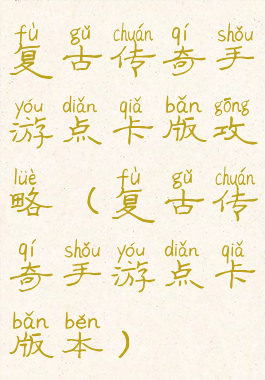 fù gǔ chuán qí shǒu
复古传奇手
yóu diǎn qiǎ bǎn gōng
游点卡版攻
lüè fù gǔ chuán
略（复古传
qí shǒu yóu diǎn qiǎ
奇手游点卡
bǎn běn
版本）